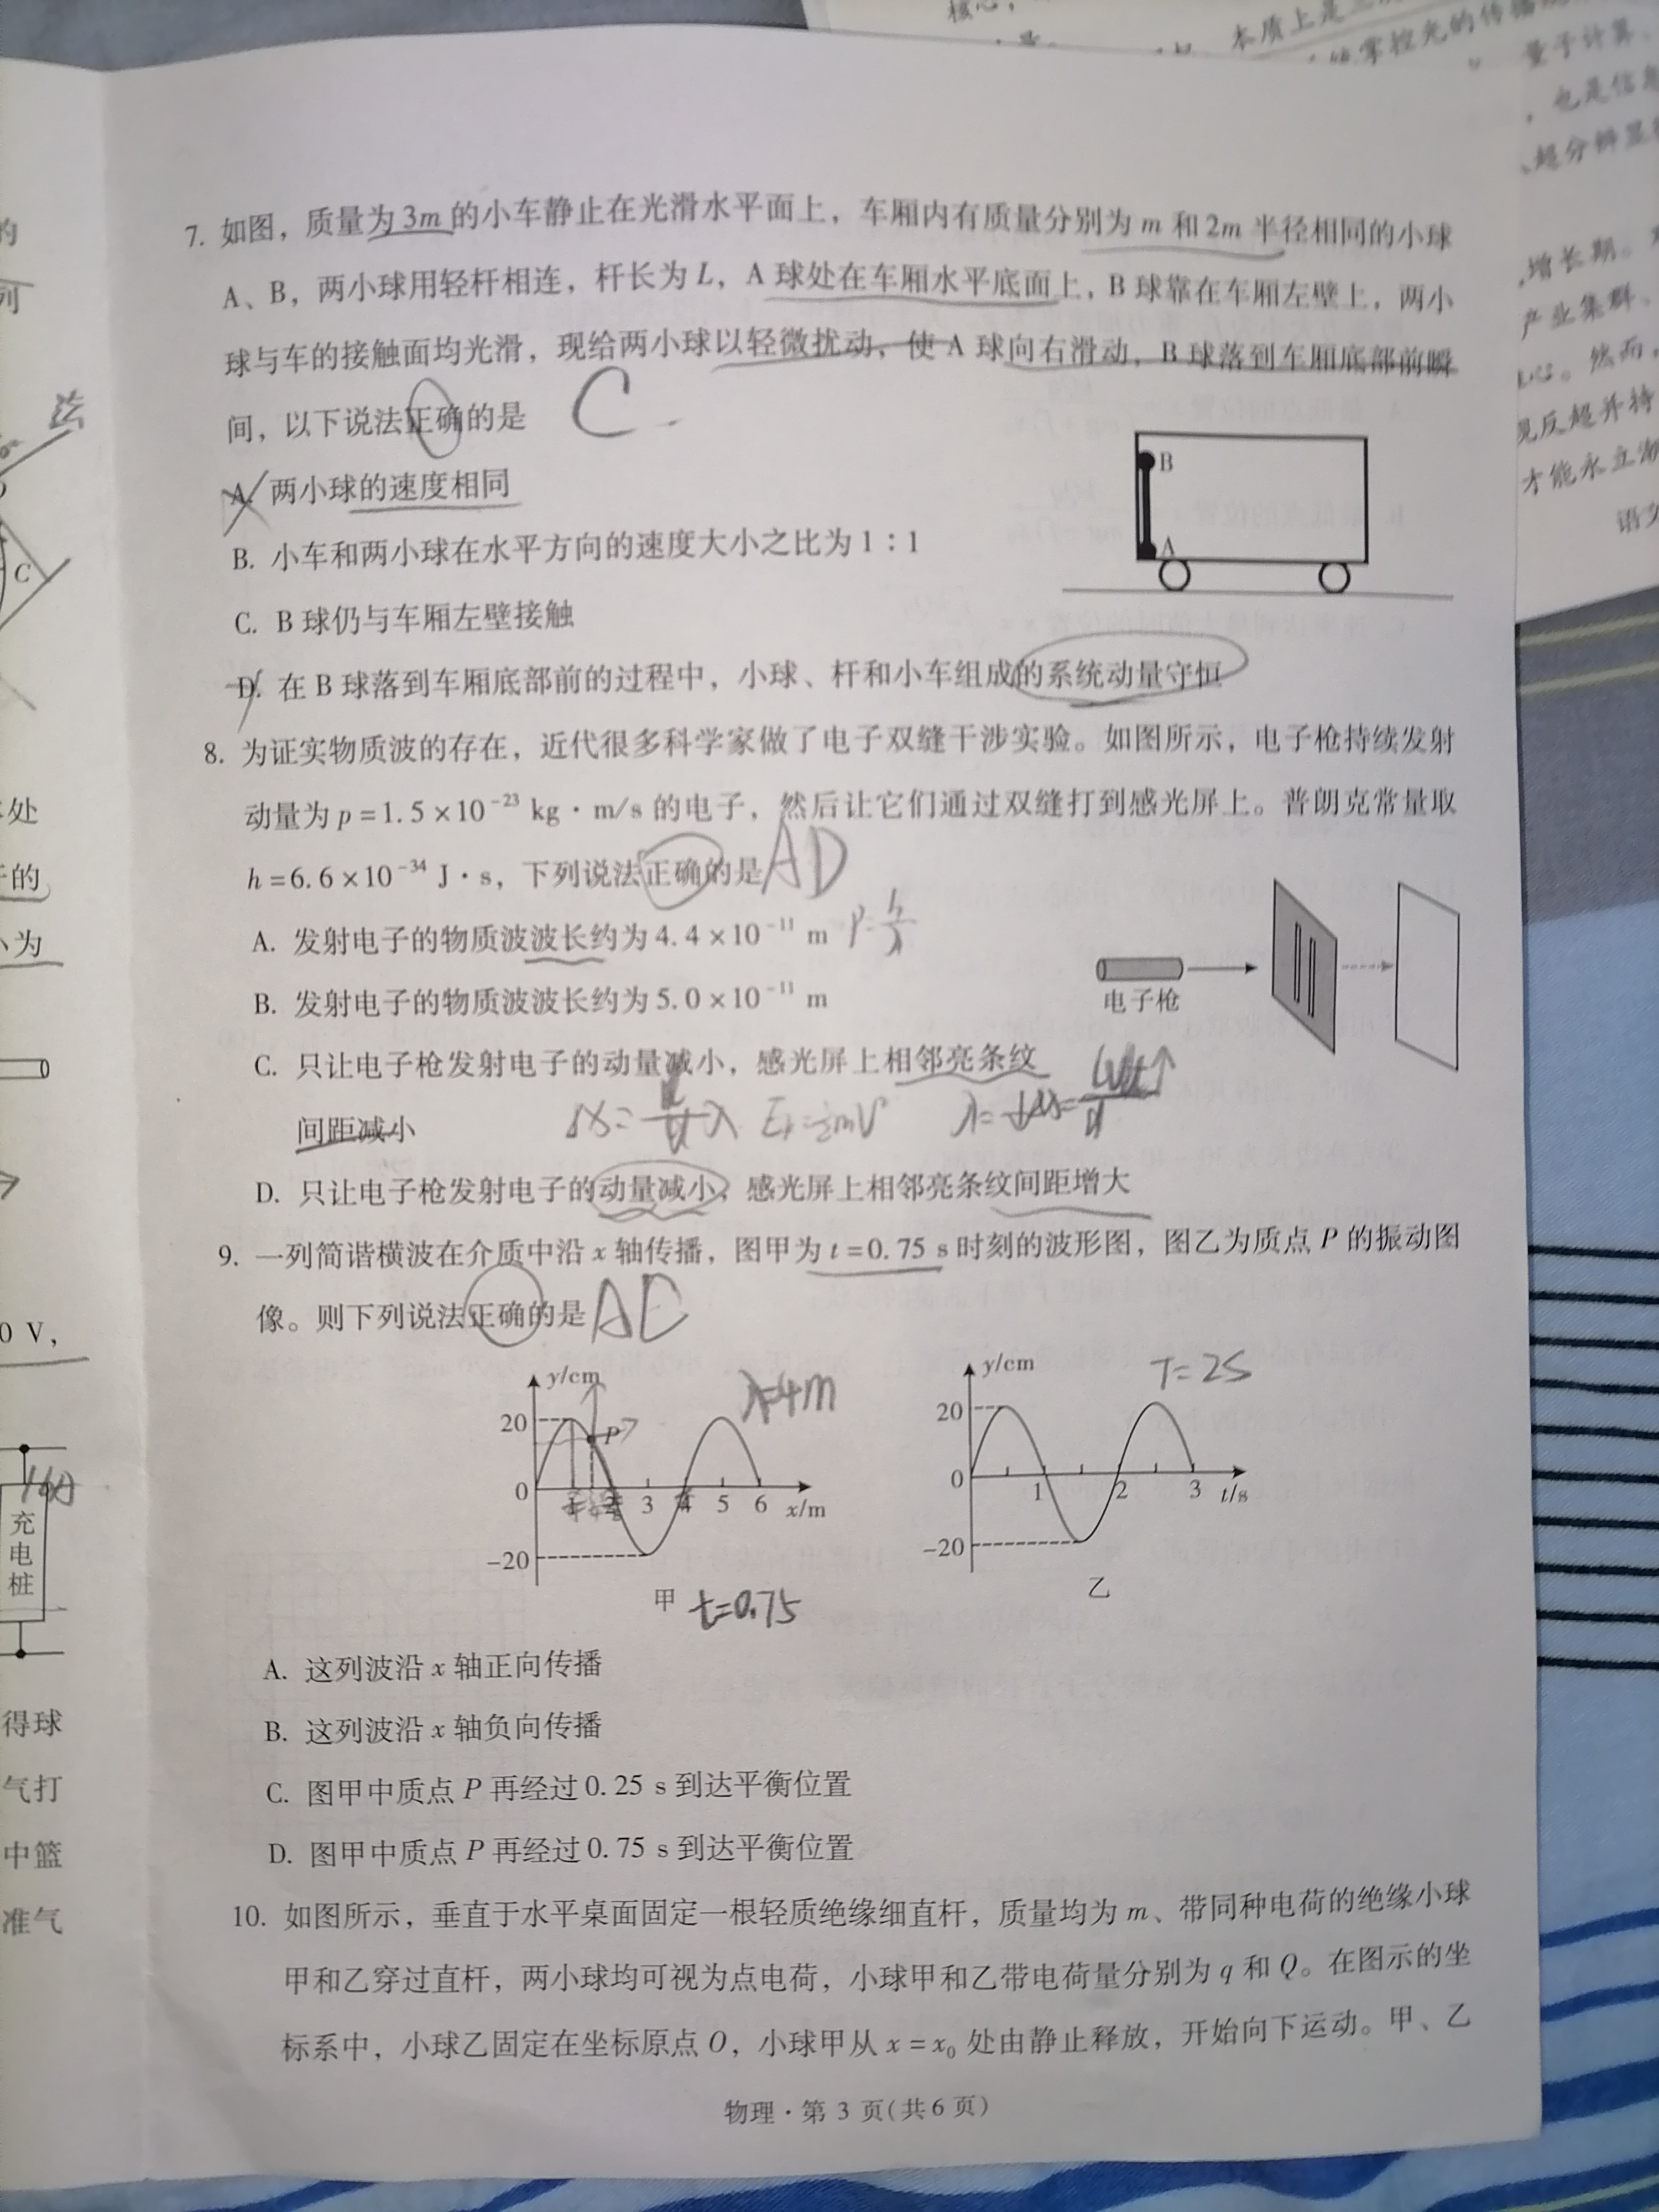 本质上是
掌控光的传播
量子计算、
也是信息
超分辨显
增长期。
产业集群、
然而,
见反超并持
才能永立潮
语文
的
列
处
的
小为
0 V,
充
电
桩
得球
气打
中篮
准气
法
C
7. 如图，质量为3m的小车静止在光滑水平面上，车厢内有质量分别为 m 和 2m 半径相同的小球
A、B，两小球用轻杆相连，杆长为 L，A 球处在车厢水平底面上，B 球靠在车厢左壁上，两小
球与车的接触面均光滑，现给两小球以轻微扰动，使 A 球向右滑动，B 球落到车厢底部前瞬
间，以下说法正确的是 C
A. 两小球的速度相同
B. 小车和两小球在水平方向的速度大小之比为 1：1
C. B 球仍与车厢左壁接触
D. 在 B 球落到车厢底部前的过程中，小球、杆和小车组成的系统动量守恒
B
A
8. 为证实物质波的存在，近代很多科学家做了电子双缝干涉实验。如图所示，电子枪持续发射
动量为 p=1.5×10⁻²³ kg·m/s 的电子，然后让它们通过双缝打到感光屏上。普朗克常量取
h=6.6×10⁻³⁴ J·s，下列说法正确的是 AD
A. 发射电子的物质波波长约为 4.4×10⁻¹¹ m P=h/λ
B. 发射电子的物质波波长约为 5.0×10⁻¹¹ m
电子枪
C. 只让电子枪发射电子的动量减小，感光屏上相邻亮条纹
间距减小
D. 只让电子枪发射电子的动量减小，感光屏上相邻亮条纹间距增大
9. 一列简谐横波在介质中沿 x 轴传播，图甲为 t=0.75 s 时刻的波形图，图乙为质点 P 的振动图
像。则下列说法正确的是 AC
y/cm
λ=4m
20
P
0
1 2 3 4 5 6 x/m
-20
甲 t=0.75
y/cm
T=2S
20
0
1 2 3 t/s
-20
乙
A. 这列波沿 x 轴正向传播
B. 这列波沿 x 轴负向传播
C. 图甲中质点 P 再经过 0.25 s 到达平衡位置
D. 图甲中质点 P 再经过 0.75 s 到达平衡位置
10. 如图所示，垂直于水平桌面固定一根轻质绝缘细直杆，质量均为 m、带同种电荷的绝缘小球
甲和乙穿过直杆，两小球均可视为点电荷，小球甲和乙带电荷量分别为 q 和 Q。在图示的坐
标系中，小球乙固定在坐标原点 O，小球甲从 x=x₀ 处由静止释放，开始向下运动。甲、乙
物理·第 3 页(共 6 页)